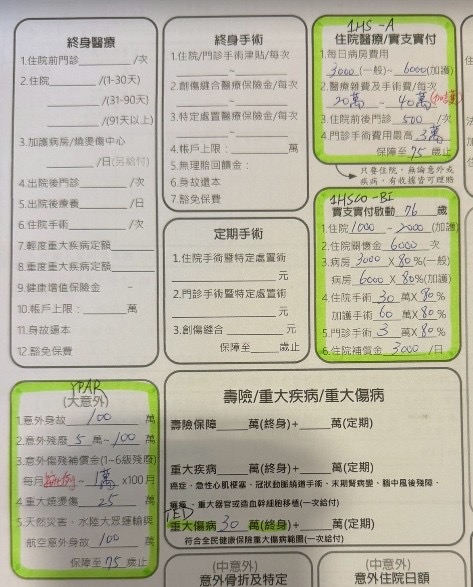 終身醫療
1.住院前門診______/次
2.住院______/(1-30天)
______/(31-90天)
______/(91天以上)
3.加護病房/燒燙傷中心
______/日(另給付)
4.出院後門診______/次
5.出院後療養______/日
6.住院手術______/次
7.輕度重大疾病定額______
8.重度重大疾病定額______
9.健康增值保險金 –
10.帳戶上限：______萬
11.身故還本
12.豁免保費
終身手術
1.住院/門診手術津貼/每次
______~______
2.創傷縫合醫療保險金/每次
______~______
3.特定處置醫療保險金/每次
______~______
4.帳戶上限：______萬
5.無理賠回饋金：
6.身故還本
7.豁免保費
定期手術
1.住院手術暨特定處置術
______元
2.門診手術暨特定處置術
______元
3.創傷縫合______元
保障至____歲止
1HS-A
住院醫療/實支實付
1.每日病房費用
3000(一般)~6000(加護)
2.醫療雜費及手術費/每次
20萬 ~ 40萬(加護)
3.住院前後門診 500 /次
4.門診手術費用最高 3萬
保障至 75 歲止
只要住院，無論意外或
疾病，有收據皆可理賠
1HSCO-BI
實支實付啟動 76 歲
1.住院 1000 ~ 2000 (加護)
2.住院關懷金 6000 次
3.病房 3000 X 80%(一般)
病房 6000 X 80%(加護)
4.住院手術 30 萬X 80%
加護手術 60 萬X 80%
5.門診手術 3 萬X 80%
6.住院補償金 3000 /日
YPAR
(大意外)
1.意外身故 100 萬
2.意外殘廢 5 萬~ 100 萬
3.意外傷殘補償金(1~6級殘廢)
每月 ~ 1萬 x100月
4.重大燒燙傷 25 萬
5.天然災害、水陸大眾運輸與
航空意外身故 100 萬
保障至 75 歲止
壽險/重大疾病/重大傷病
壽險保障____萬(終身)+____萬(定期)
重大疾病____萬(終身)+____萬(定期)
癌症、急性心肌梗塞、冠狀動脈繞道手術、末期腎病變、腦中風後殘障、
癱瘓、重大器官或造血幹細胞移植(一次給付)
TED
重大傷病 30 萬(終身)+____萬(定期)
符合全民健康保險重大傷病範圍(一次給付)
(中意外)
意外骨折及特定
(中意外)
意外住院日額